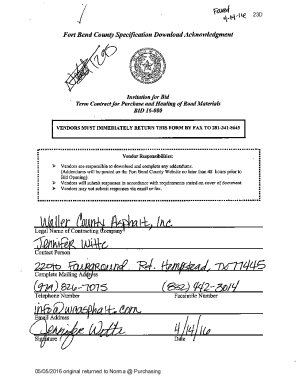 Faxed
4-14-16 230
Fort Bend County Specification Download Acknowledgment
Invitation for Bid
Term Contract for Purchase and Hauling of Road Materials
BID 16-080
VENDORS MUST IMMEDIATELY RETURN THIS FORM BY FAX TO 281-341-8645
Vendor Responsibilities:
➢ Vendors are responsible to download and complete any addendums.
(Addendums will be posted on the Fort Bend County Website no later than 48 hours prior to
Bid Opening)
➢ Vendors will submit responses in accordance with requirements stated on cover of document.
➢ Vendors may not submit responses via email or fax.
Waller County Asphalt, Inc.
Legal Name of Contracting Company
Jennifer Witte
Contact Person
22010 Fairground Rd. Hempstead, TX 77445
Complete Mailing Address
(979) 826-7075 (832) 442-3014
Telephone Number Facsimile Number
info@wrasphalt.com
Email Address
Jennifer Witte 4/14/16
Signature Date
05/05/2016 original returned to Norma @ Purchasing